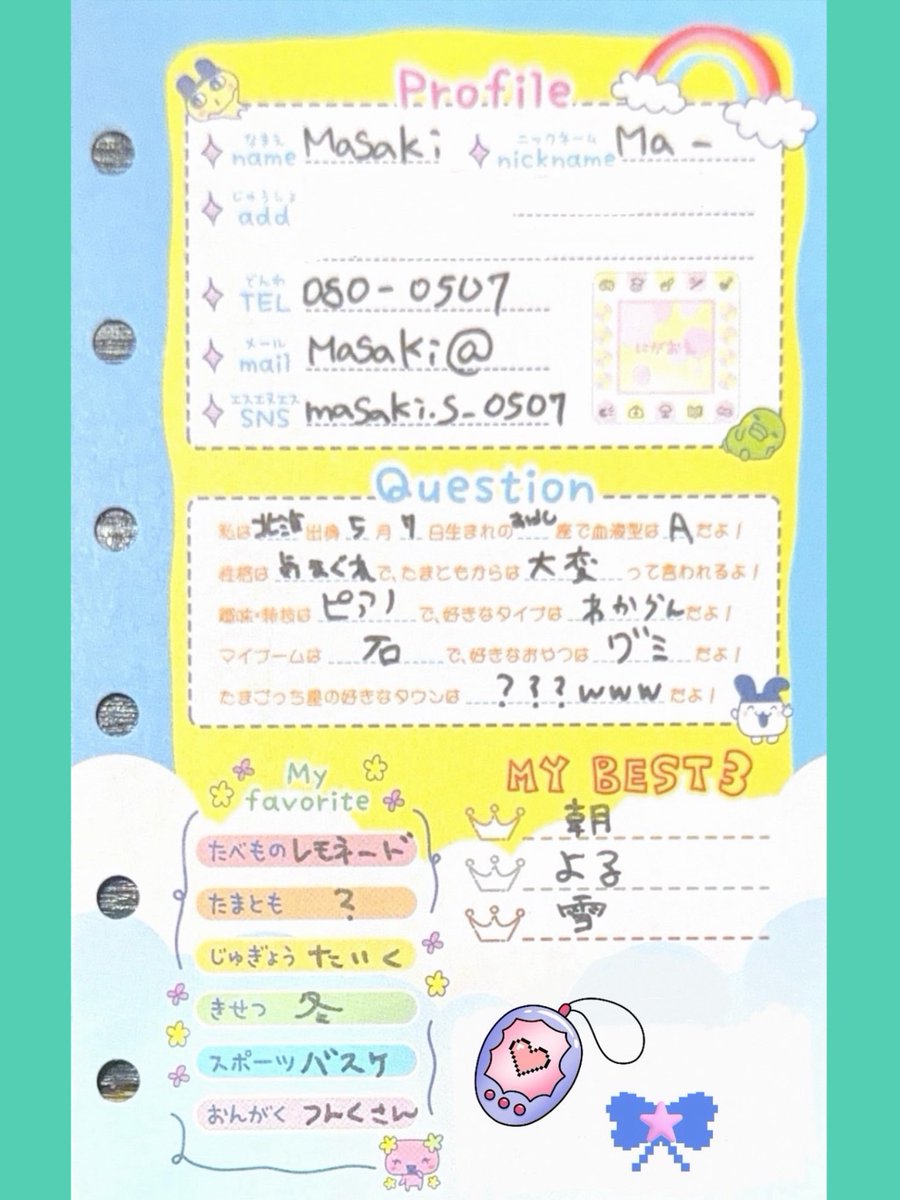 Profile
なまえ name Masaki ニックネーム nickname Ma-
じゅうしょ add
でんわ TEL 080-0507
メール mail Masaki@
エスエヌエス SNS masaki.s_0507
にがおえ
Question
私は 北海道 出身 5 月 7 日生まれの おうし 座で血液型は A だよ!
性格は きまぐれ で、たまともからは 大変 って言われるよ!
趣味・特技は ピアノ で、好きなタイプは わからん だよ!
マイブームは 石 で、好きなおやつは グミ だよ!
たまごっち星の好きなタウンは ???www だよ!
My favorite
たべもの レモネード
たまとも ?
じゅぎょう たいく
きせつ 冬
スポーツ バスケ
おんがく つんくさん
MY BEST3
朝
よる
雪